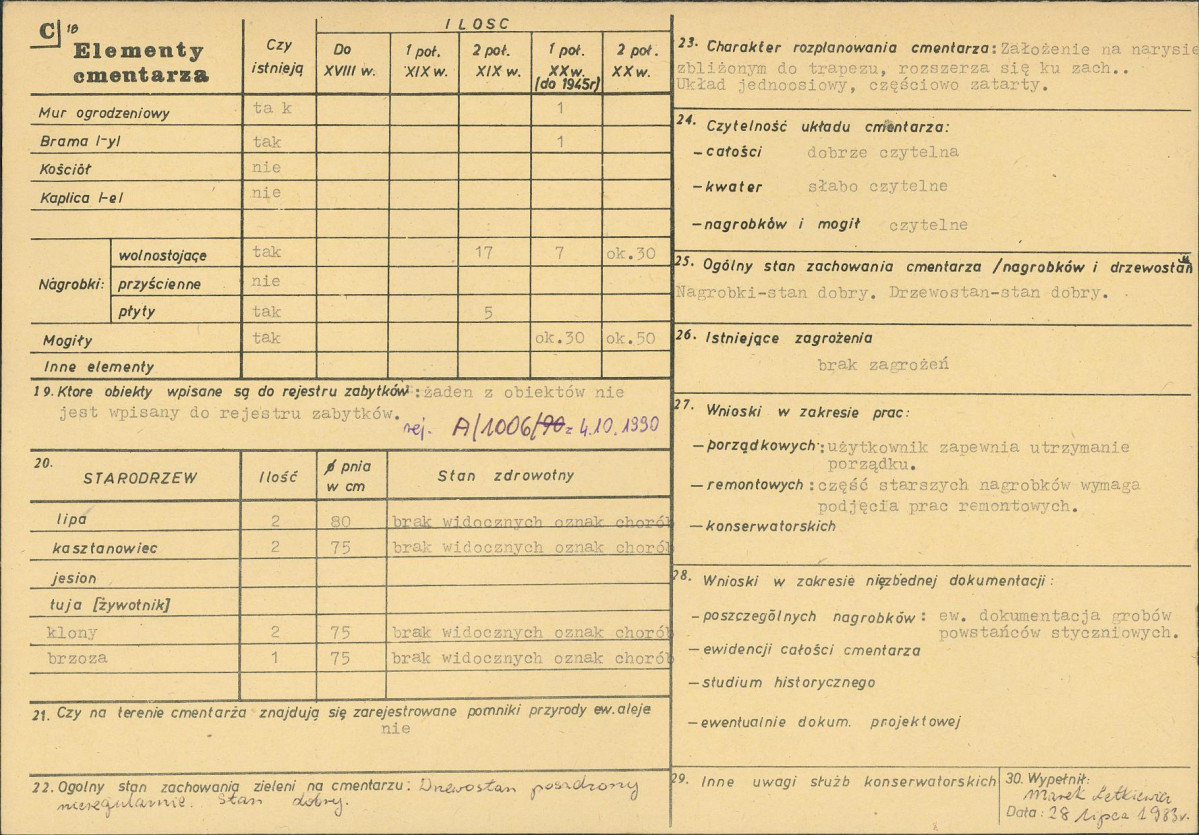 C 18
Elementy cmentarza
Czy istnieją
ILOSC
Do XVIII w.
1 poł. XIX w.
2 poł. XIX w.
1 poł. XX w. (do 1945r)
2 poł. XX w.
Mur ogrodzeniowy ta k 1
Brama /-y/ tak 1
Kościół nie
Kaplica /-e/ nie
Nagrobki:
wolnostojące tak 17 7 ok.30
przyścienne nie
płyty tak 5
Mogiły tak ok.30 ok.50
Inne elementy
19. Ktore obiekty wpisane są do rejestru zabytków: żaden z obiektów nie
jest wpisany do rejestru zabytków.
rej. A/1006/90 z 4.10.1990
20. STARODRZEW Ilość ø pnia w cm Stan zdrowotny
lipa 2 80 brak widocznych oznak chorób
kasztanowiec 2 75 brak widocznych oznak chorób
jesion
tuja [żywotnik]
klony 2 75 brak widocznych oznak chorób
brzoza 1 75 brak widocznych oznak chorób
21. Czy na terenie cmentarza znajdują się zarejestrowane pomniki przyrody ew. aleje
nie
22. Ogolny stan zachowania zieleni na cmentarzu: Drzewostan posadzony
nieregularnie. Stan dobry.
23. Charakter rozplanowania cmentarza: Założenie na narysie
zbliżonym do trapezu, rozszerza się ku zach..
Układ jednoosiowy, częściowo zatarty.
24. Czytelność układu cmentarza:
– całości dobrze czytelna
– kwater słabo czytelne
– nagrobków i mogił czytelne
25. Ogólny stan zachowania cmentarza /nagrobków i drzewostan
Nagrobki-stan dobry. Drzewostan-stan dobry.
26. Istniejące zagrożenia
brak zagrożeń
27. Wnioski w zakresie prac:
– porządkowych: użytkownik zapewnia utrzymanie
porządku.
– remontowych: część starszych nagrobków wymaga
podjęcia prac remontowych.
– konserwatorskich
28. Wnioski w zakresie niezbędnej dokumentacji:
– poszczególnych nagrobków: ew. dokumentacja grobów
powstańców styczniowych.
– ewidencji całości cmentarza
– studium historycznego
– ewentualnie dokum. projektowej
29. Inne uwagi służb konserwatorskich
30. Wypełnił:
Marek Letkiewicz
Data: 28 lipca 1983r.